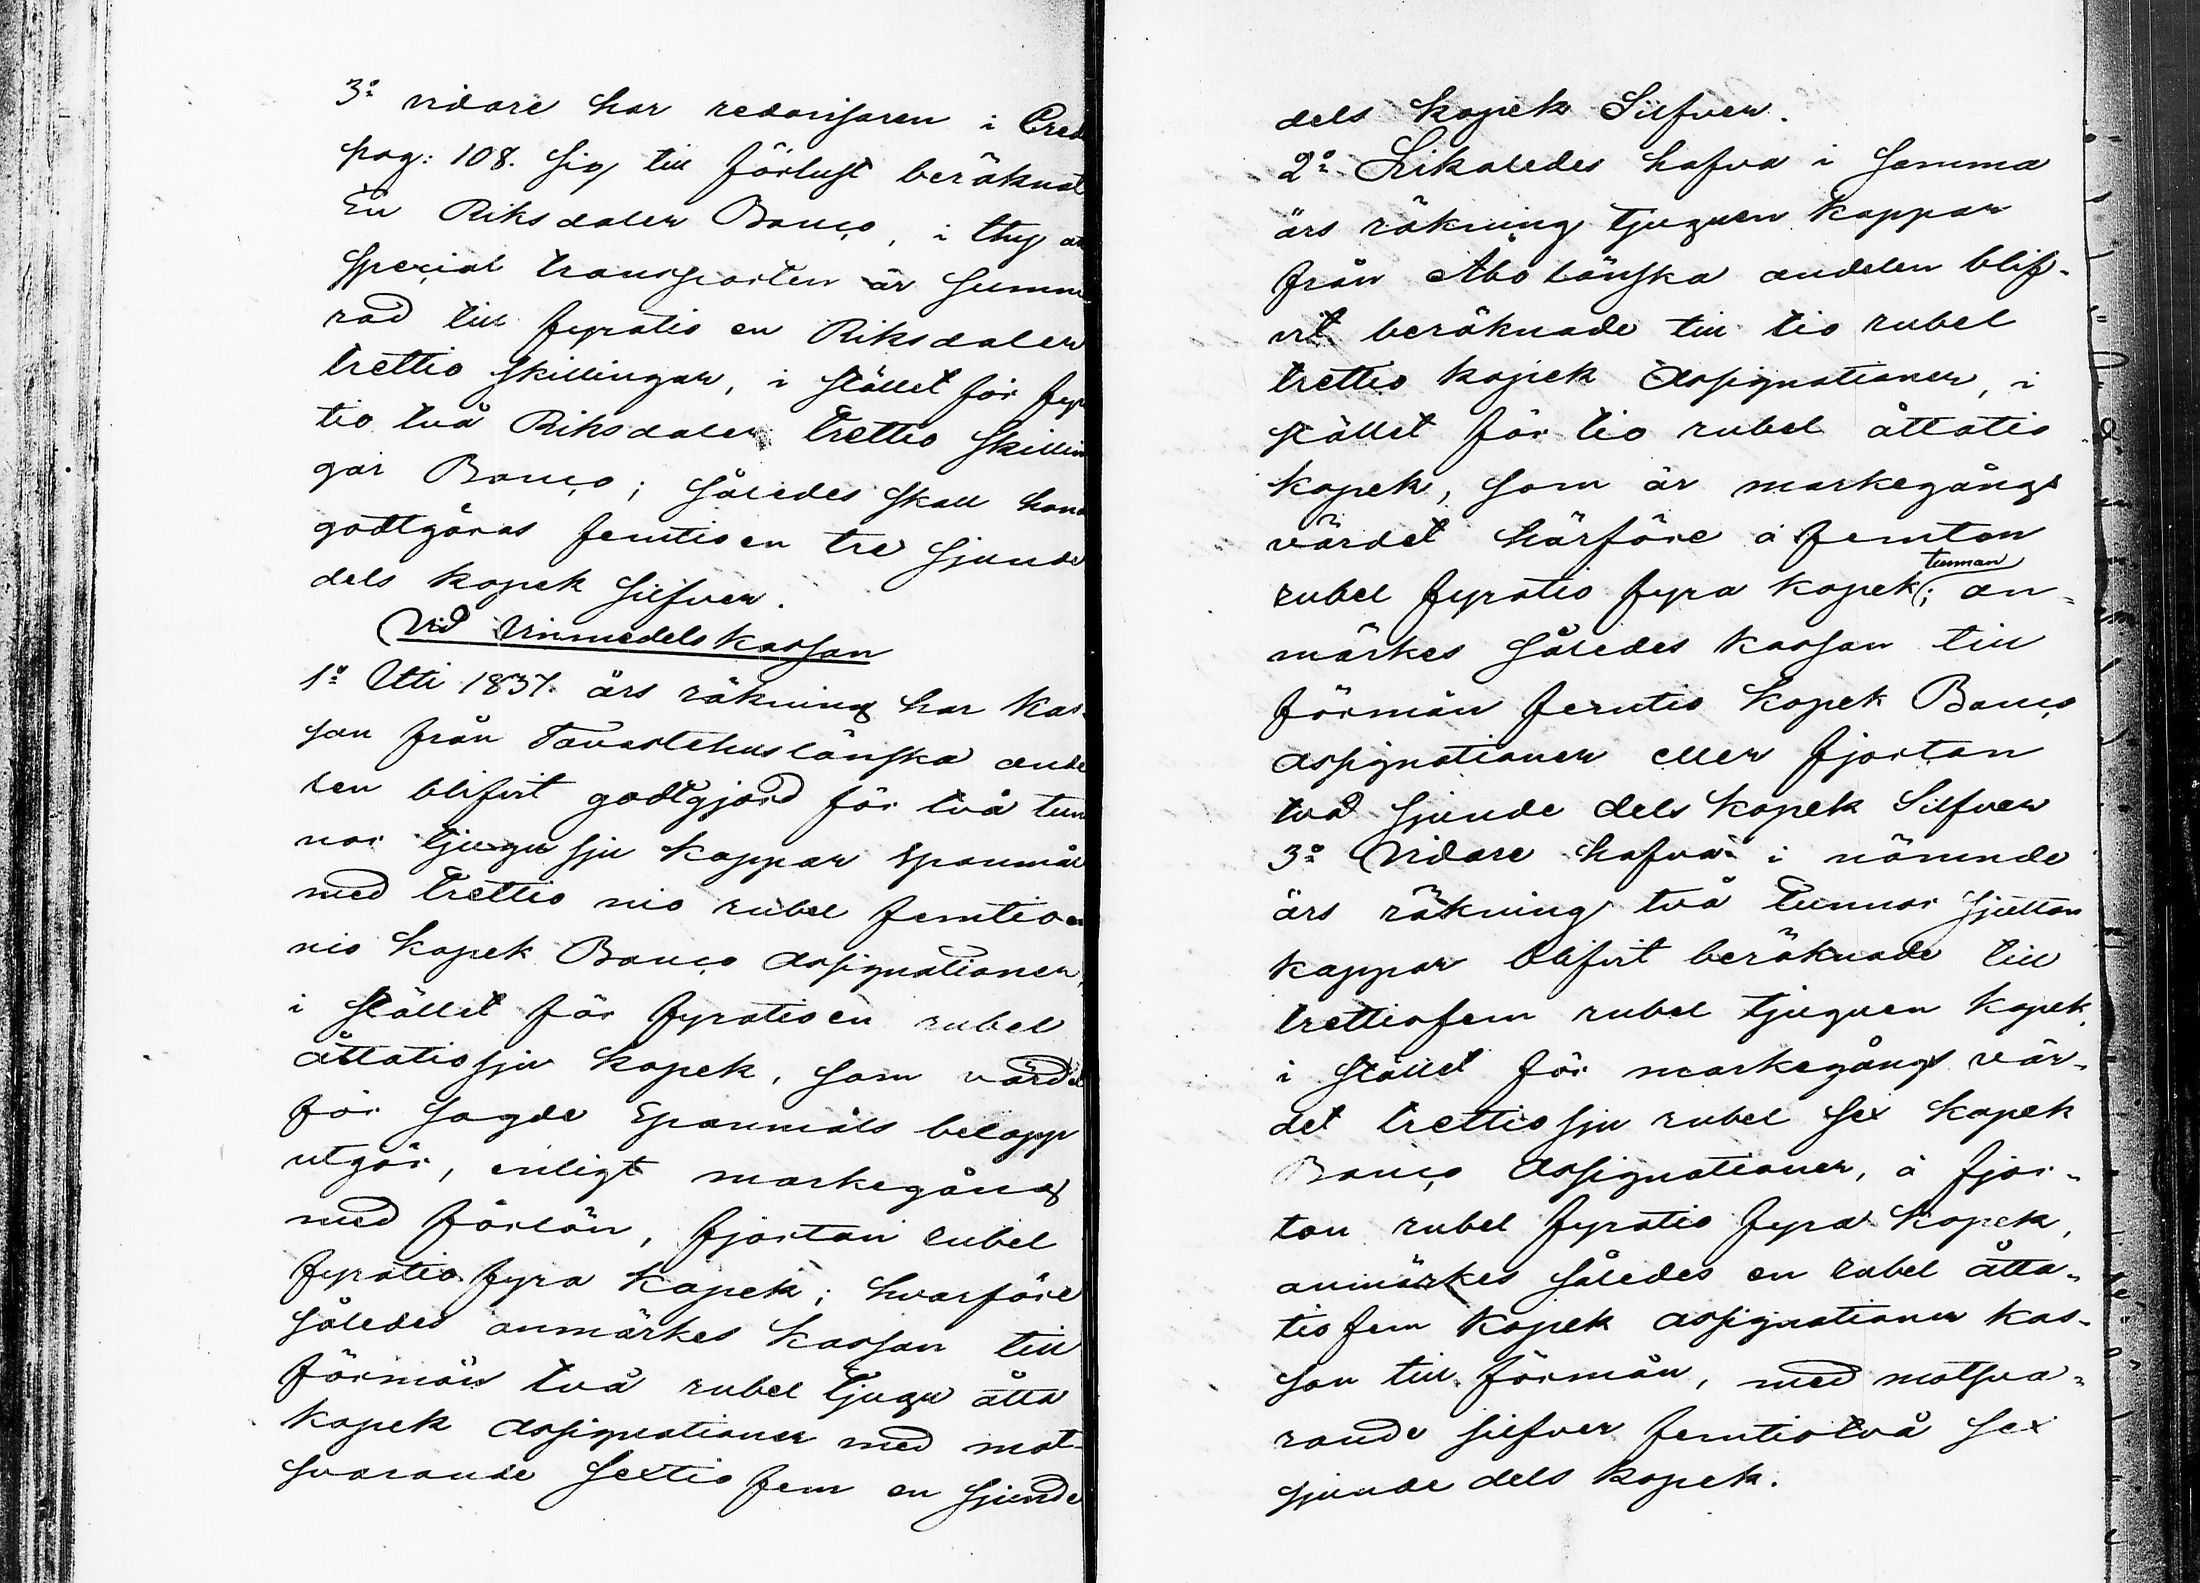 3:o vidare har redovisaren i Cred
pag: 108. sig till förlust beräknat
En Riksdaler Banco, i thy at
special transporten är summe
rad till fyratio en Riksdaler
trettio skillingar, i stället för fyr
tio två Riksdaler trettio skillin
gar Banco; således skall hono
godtgöras femtioen tre sjunde
dels kopek silfver.
Vid Vinmedelskassan
1:o Uti 1837. års räkning har kas-
san från Tavastehus länska ande
len blifvit godtgjord för två tun
nor tjugu sju kappar spanmål
med trettio nio rubel femtio
nio kopek Banco Assignationer,
i stället för fyratioen rubel
åttatiosju kopek, som värdet
för sagde Spanmåls belopp
utgör, enligt markegång
med förlön, fjorton rubel
fyratiofyra kopek; hvarföre
således anmärkes kassan till
förmån två rubel tjugu åtta
kopek assignationer med mot-
svarande sextio fem en sjunde
dels kopek Silfver.
2:o Likaledes hafva i samma
års räkning tjuguen kappar
från Åbo länska andelen blif-
vit beräknade till tio rubel
trettio kopek Assignationer, i
stället för tio rubel åttatio
kopek, som är markegångs
värdet härföre à femton
tunnan
rubel fyratio fyra kopek; an-
märkes således kassan till
förmån femtio kopek Banco
assignationer eller fjorton
två sjunde dels kopek Silfver
3:o Vidare hafva i nämnde
års räkning två tunnor sjutton
kappar blifvit beräknade till
trettiofem rubel tjuguen kopek,
i stället för markegångs vär-
det trettiosju rubel sex kopek
Banco Assignationer, à fjor-
ton rubel fyratio fyra kopek,
anmärkes således en rubel åtta-
tiofem kopek assignationer kas-
san till förmån, med motsva-
rande silfver femtiotvå sex
sjunde dels kopek.